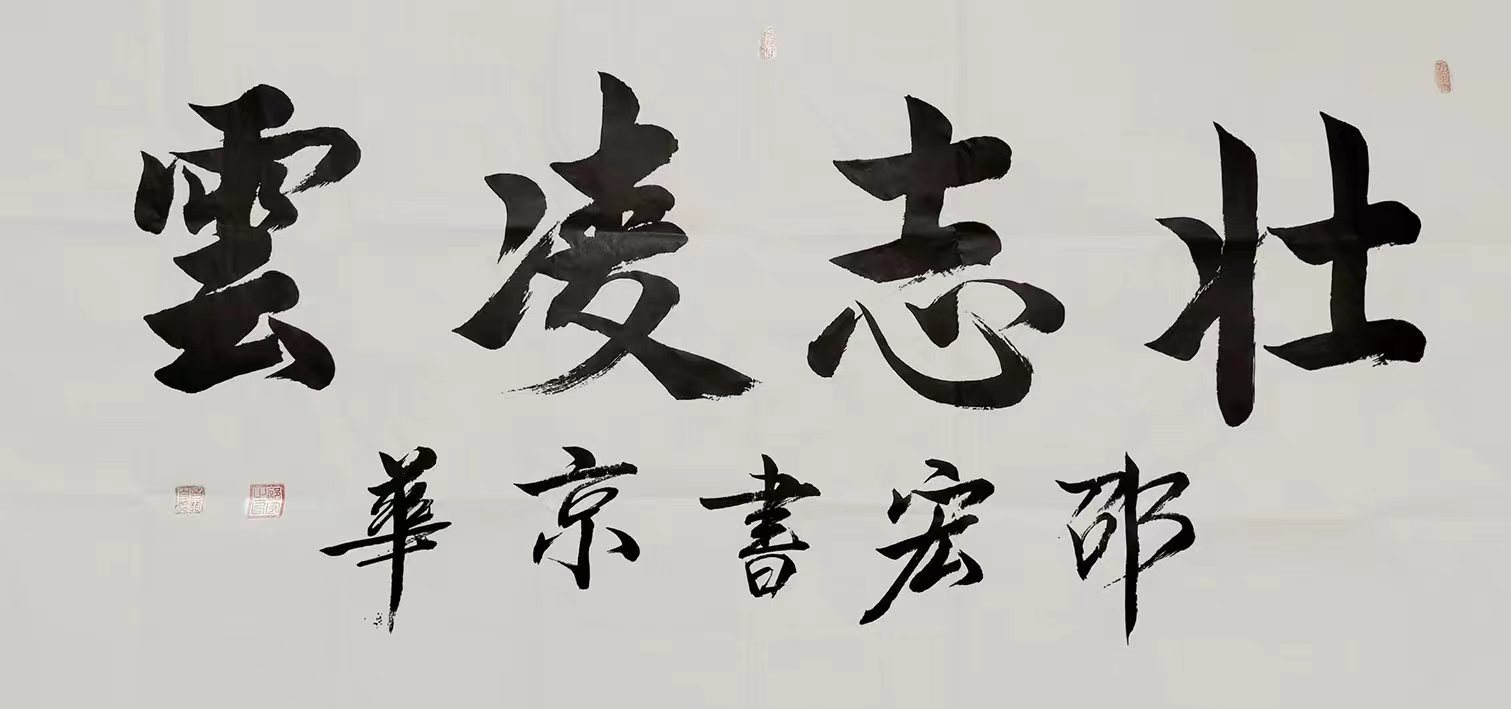 壮志凌雲
邵宏書京華